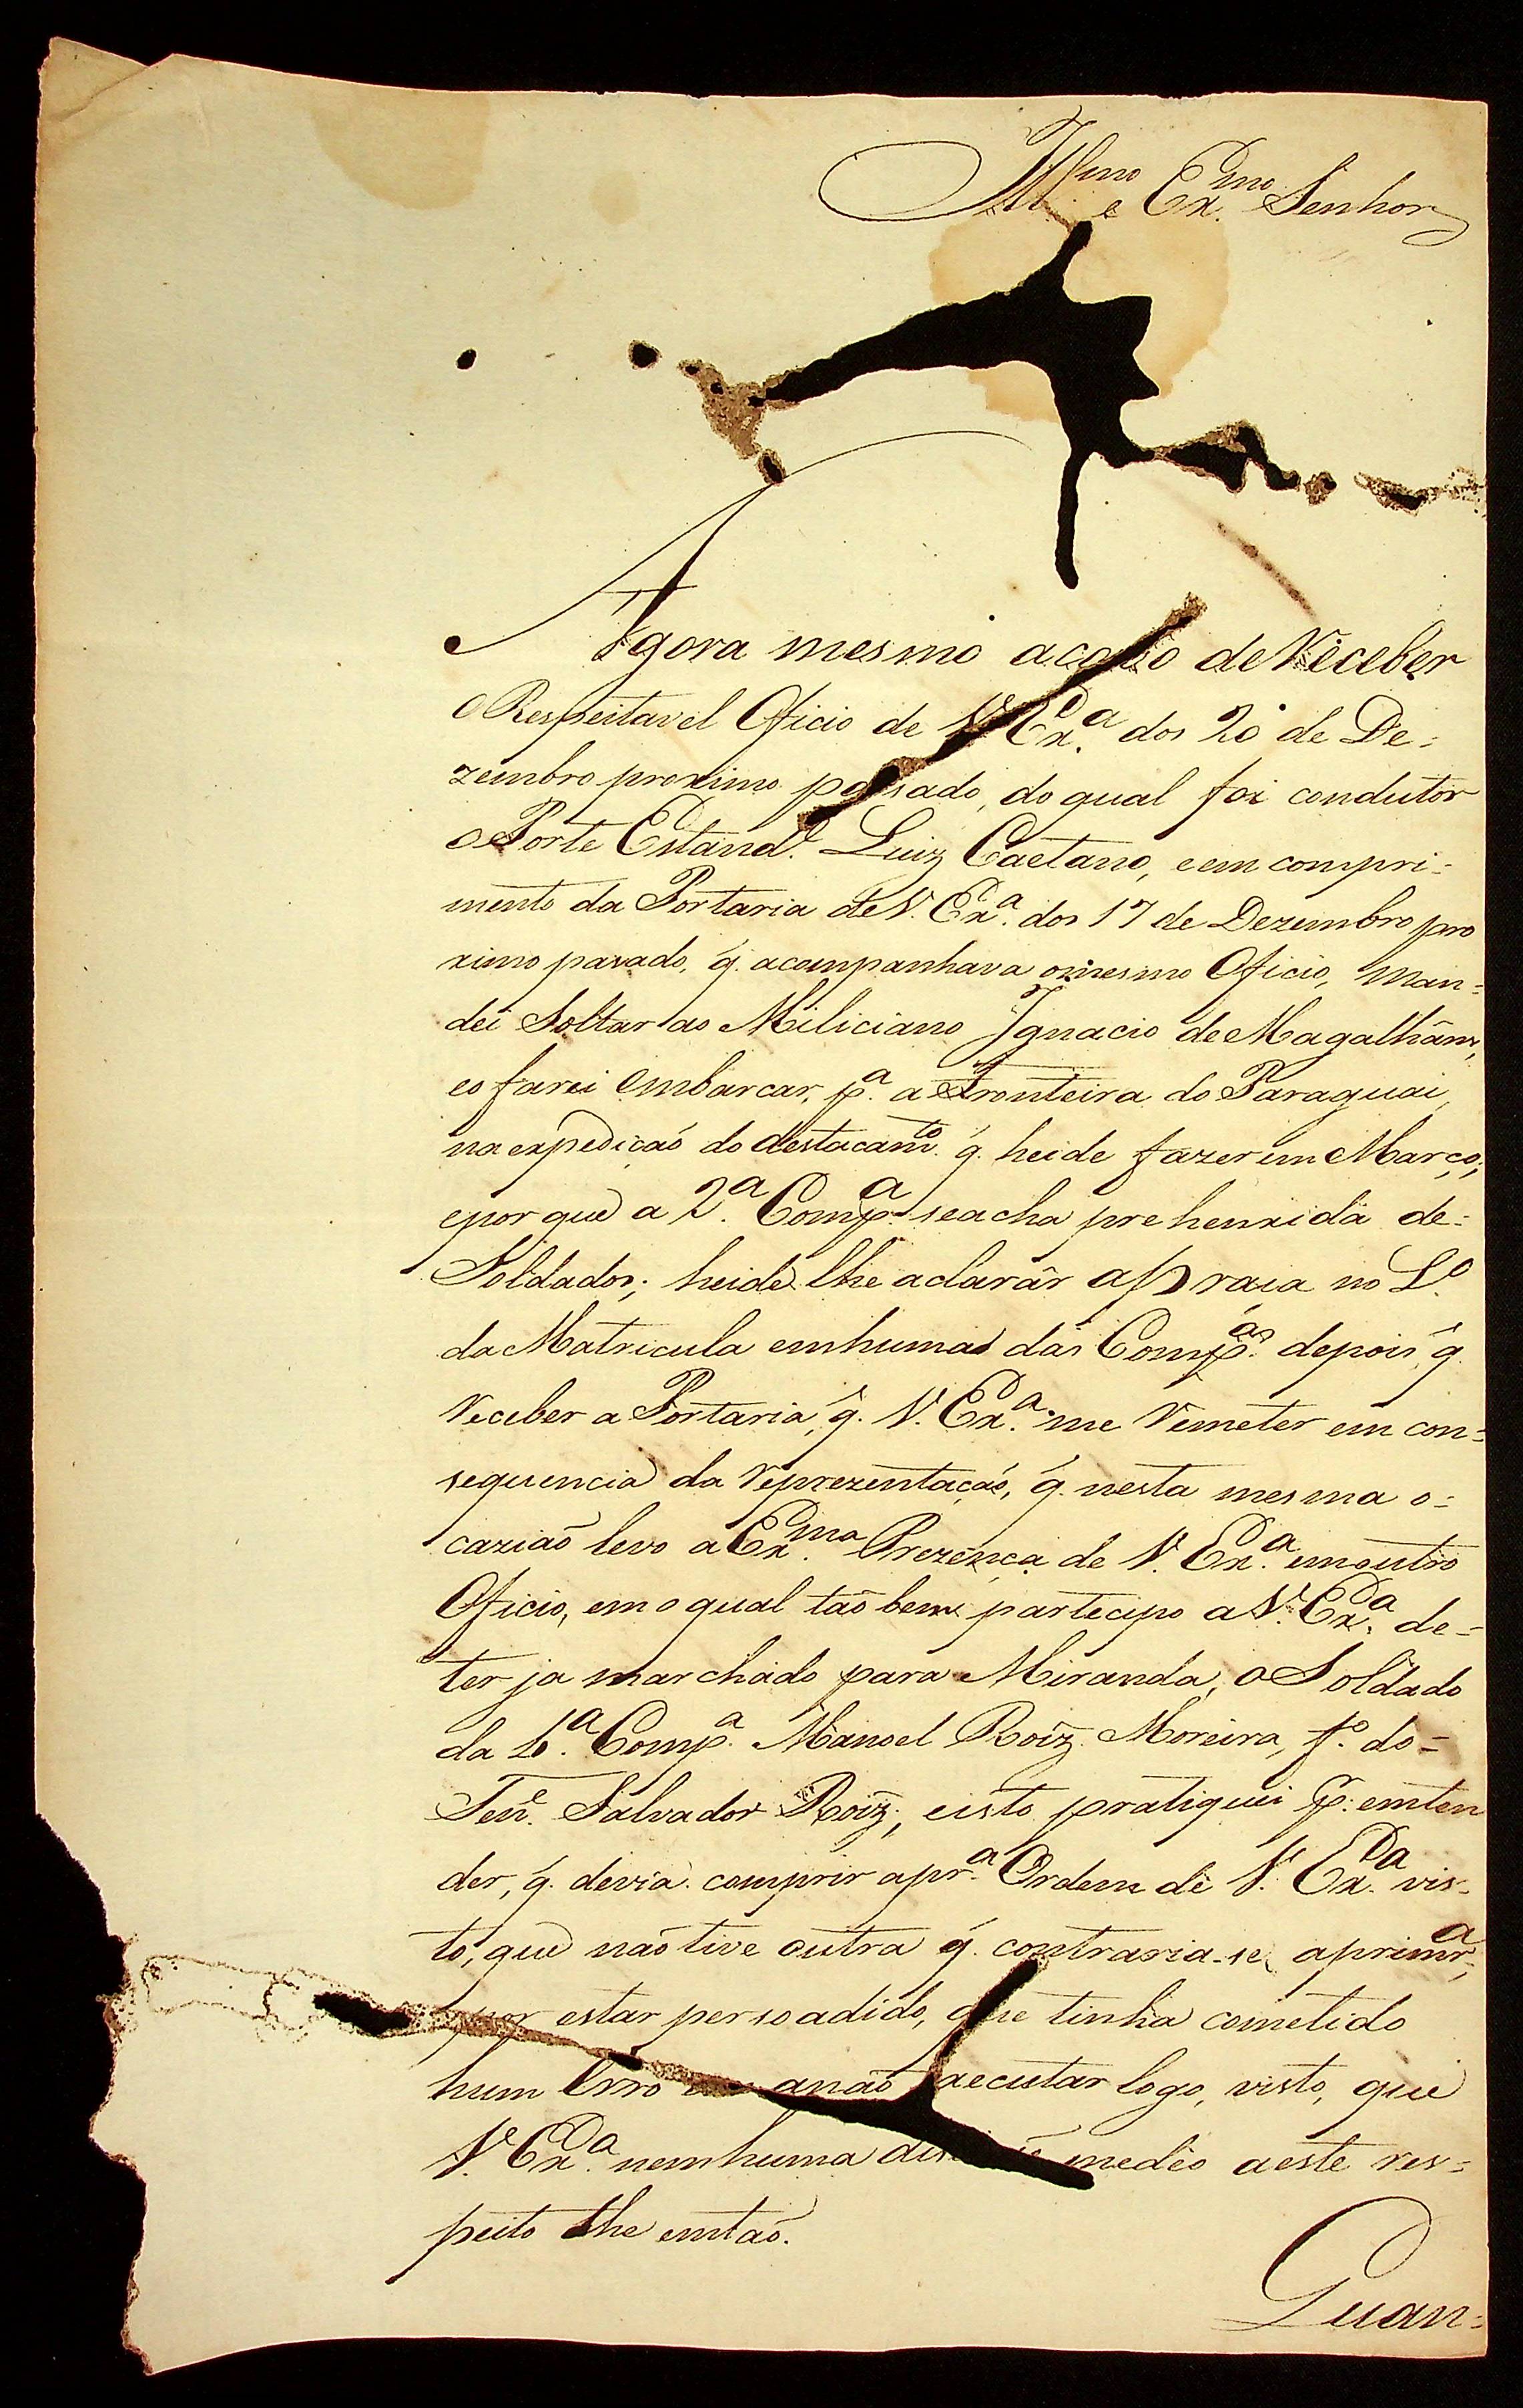 Ill.mo e Ex.mo Senhor
Agora mesmo acabo de receber
o Respeitavel Oficio de V. Ex.a dos 20 de De=
zembro proximo pasado, do qual foi condutor
o Porte Estand.e Luiz Caetano, e em compri=
mento da Portaria de V. Ex.a dos 17 de Dezembro pro
ximo pasado, q̃. acompanhava o mesmo Oficio, man=
dei Soltar ao Miliciano Ignacio de Magalhãns,
e o farei embarcar, p.a a Fronteira do Paraguai,
na expedição do destacam.to q̃. heide fazer em Março;
e por que a 2.a Comp.a se acha prehenxida de=
Soldados; heide lhe aclarár a praça no L.o
da Matricula em huma das Comp.as depois q̃.
receber a Portaria, q̃. V. Ex.a me remeter em con=
sequencia da reprezentação, q̃. nesta mesma o=
cazião levo a Ex.ma Prezença de V. Ex.a em outro
Oficio, em o qual tão bem partecipo a V. Ex.a de=
ter ja marchado para Miranda, o Soldado
da 1.a Comp.a Manoel Roiz. Moreira, f.o do=
Ten.e Salvador Roiz., e isto pratiquei p.r emten
der, q̃. devia comprir a pr.a Ordem de V. Ex.a vis=
to, que não tive outra q̃. contraria-se a primr.a,
por estar persoadido, que tinha cometido
hum erro anão executar logo, visto, que
V. Ex.a nemhuma me deo a este res=
peito the emtão.
Quan=